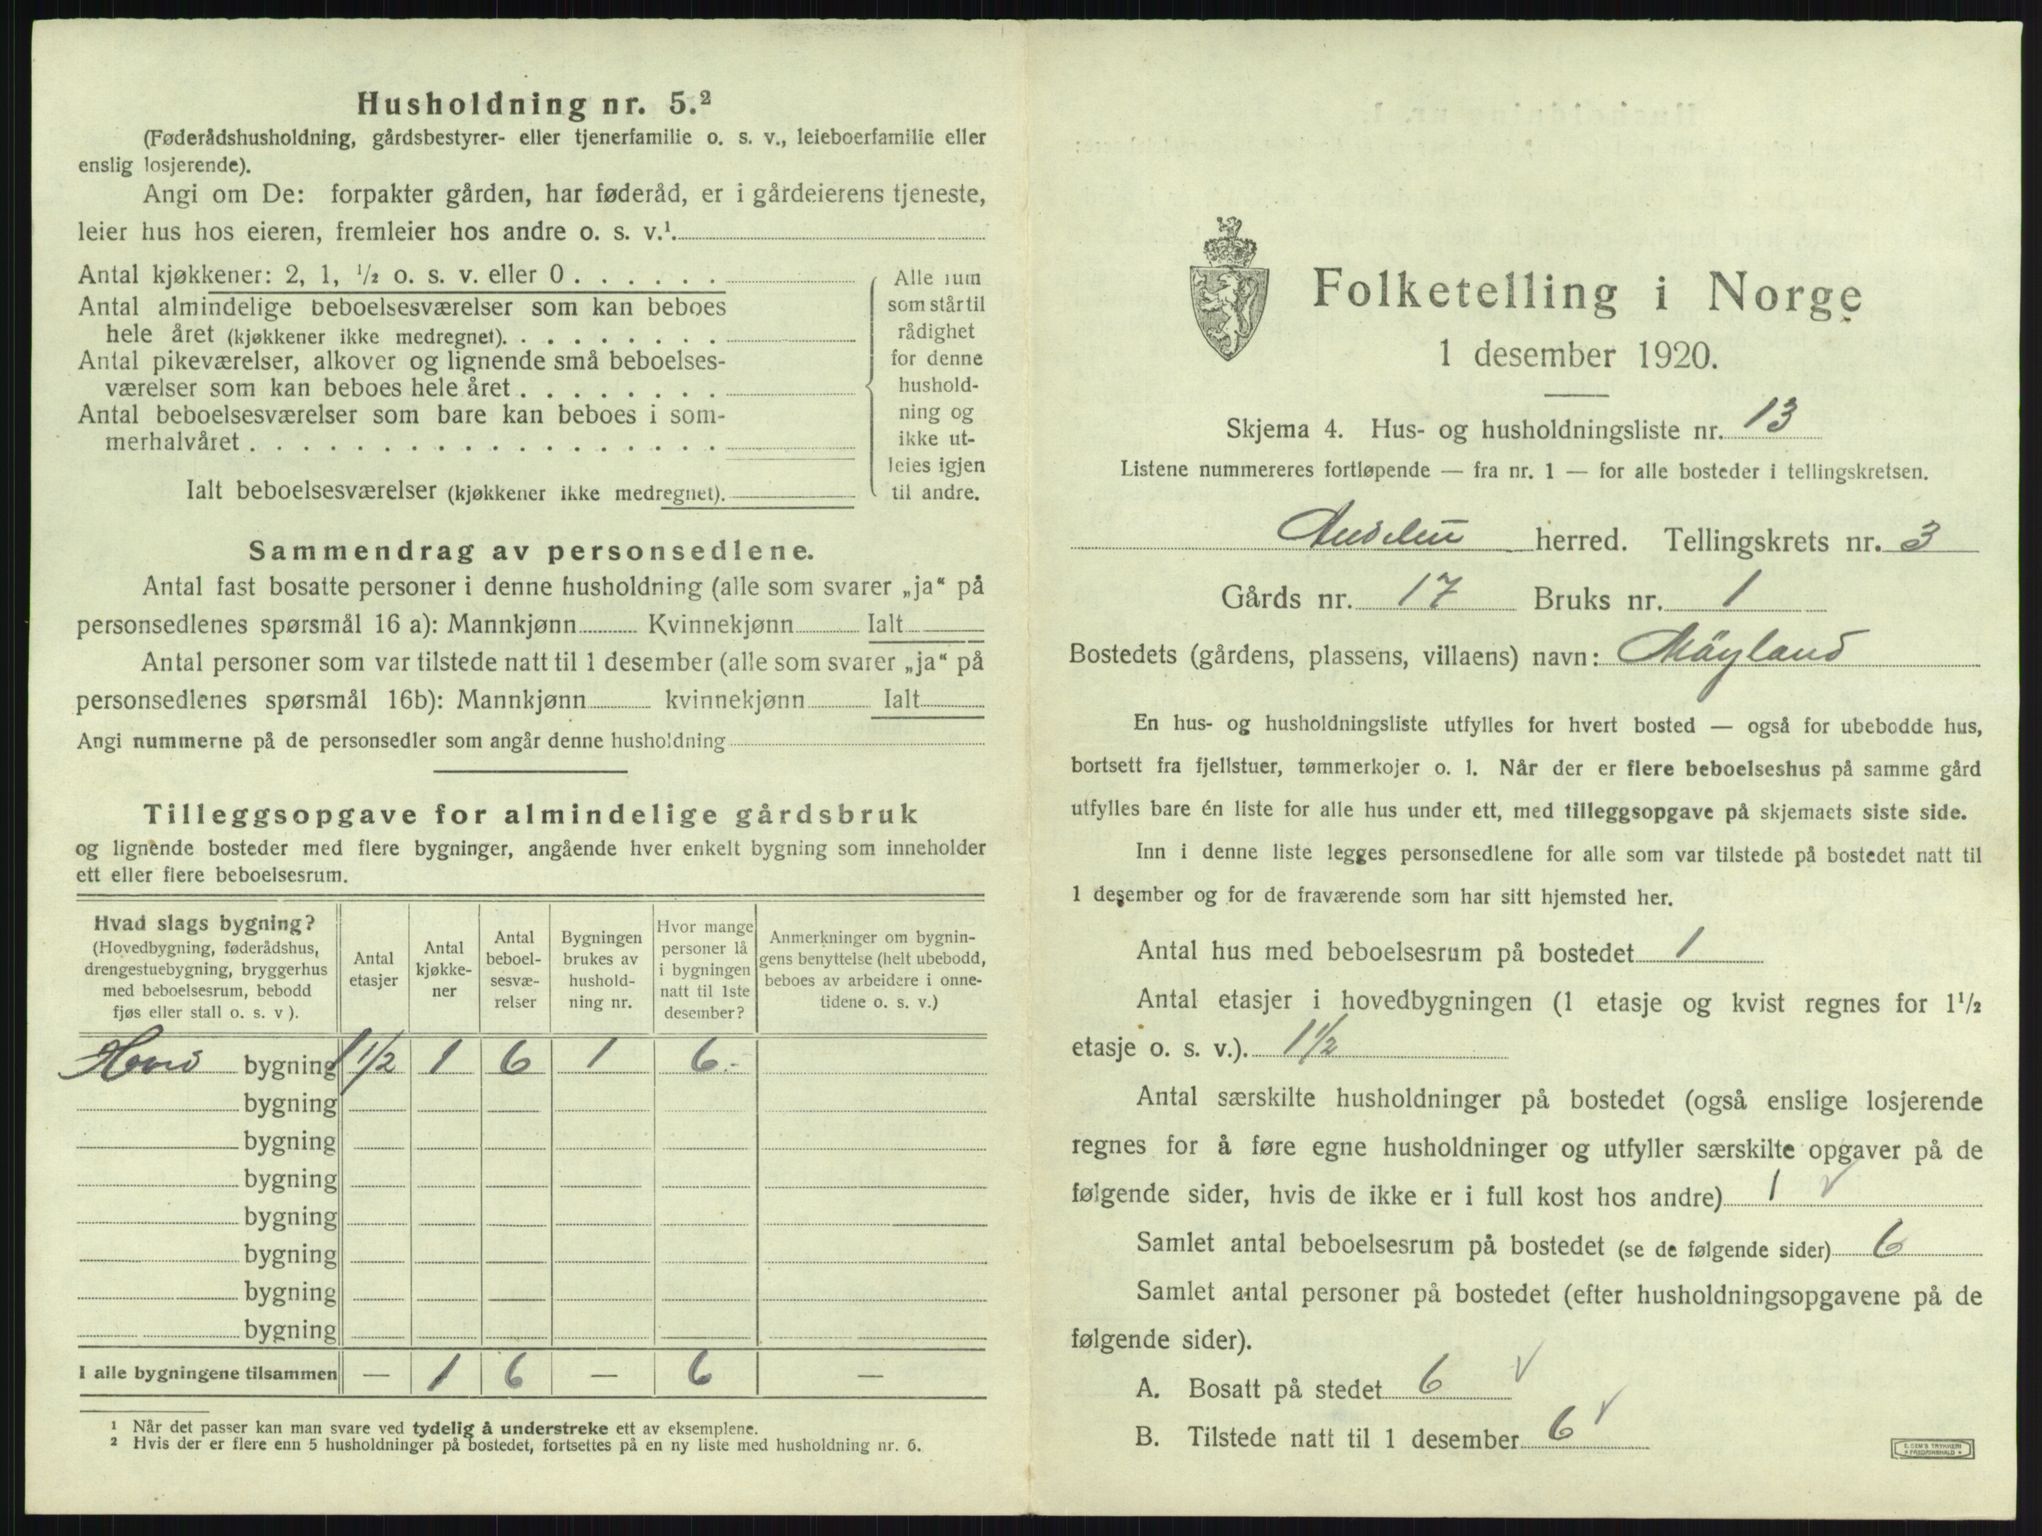 Husholdning nr. 5.²
(Føderådshusholdning, gårdsbestyrer- eller tjenerfamilie o. s. v., leieboerfamilie eller
enslig losjerende).
Angi om De: forpakter gården, har føderåd, er i gårdeierens tjeneste,
leier hus hos eieren, fremleier hos andre o. s. v.¹
Antal kjøkkener: 2, 1, ½ o. s. v. eller 0
Antal almindelige beboelsesværelser som kan beboes
hele året (kjøkkener ikke medregnet).
Antal pikeværelser, alkover og lignende små beboelses-
værelser som kan beboes hele året
Antal beboelsesværelser som bare kan beboes i som-
merhalvåret
Ialt beboelsesværelser (kjøkkener ikke medregnet).
Alle rum
som står til
rådighet
for denne
hushold-
ning og
ikke ut-
leies igjen
til andre.
Sammendrag av personsedlene.
Antal fast bosatte personer i denne husholdning (alle som svarer „ja“ på
personsedlenes spørsmål 16 a): Mannkjønn Kvinnekjønn Ialt
Antal personer som var tilstede natt til 1 desember (alle som svarer „ja“ på
personsedlenes spørsmål 16b): Mannkjønn kvinnekjønn Ialt
Angi nummerne på de personsedler som angår denne husholdning
Tilleggsopgave for almindelige gårdsbruk
og lignende bosteder med flere bygninger, angående hver enkelt bygning som inneholder
ett eller flere beboelsesrum.
Hvad slags bygning?
(Hovedbygning, føderådshus,
drengestuebygning, bryggerhus
med beboelsesrum, bebodd
fjøs eller stall o. s. v ).
Antal
etasjer
Antal
kjøkke-
ner
Antal
beboel-
sesvæ-
relser
Bygningen
brukes av
hushold-
ning nr.
Hvor mange
personer lå
i bygningen
natt til 1ste
desember?
Anmerkninger om bygnin-
gens benyttelse (helt ubebodd,
beboes av arbeidere i onne-
tidene o. s. v.)
Hovd bygning 1 1/2 1 6 1 6.-
bygning
bygning
bygning
bygning
bygning
bygning
bygning
I alle bygningene tilsammen — 1 6 — 6 —
¹ Når det passer kan man svare ved tydelig å understreke ett av eksemplene.
² Hvis der er flere enn 5 husholdninger på bostedet, fortsettes på en ny liste med husholdning nr. 6.
Folketelling i Norge
1 desember 1920.
Skjema 4. Hus- og husholdningsliste nr. 13
Listene nummereres fortløpende — fra nr. 1 — for alle bosteder i tellingskretsen.
herred. Tellingskrets nr. 3
Gårds nr. 17 Bruks nr. 1
Bostedets (gårdens, plassens, villaens) navn: Möyland
En hus- og husholdningsliste utfylles for hvert bosted — også for ubebodde hus,
bortsett fra fjellstuer, tømmerkojer o. l. Når der er flere beboelseshus på samme gård
utfylles bare én liste for alle hus under ett, med tilleggsopgave på skjemaets siste side.
Inn i denne liste legges personsedlene for alle som var tilstede på bostedet natt til
1 desember og for de fraværende som har sitt hjemsted her.
Antal hus med beboelsesrum på bostedet 1
Antal etasjer i hovedbygningen (1 etasje og kvist regnes for 1½
etasje o. s. v.). 1½
Antal særskilte husholdninger på bostedet (også enslige losjerende
regnes for å føre egne husholdninger og utfyller særskilte opgaver på de
følgende sider, hvis de ikke er i full kost hos andre) 1 √
Samlet antal beboelsesrum på bostedet (se de følgende sider) 6
Samlet antal personer på bostedet (efter husholdningsopgavene på de
følgende sider).
A. Bosatt på stedet 6 √
B. Tilstede natt til 1 desember 6 √